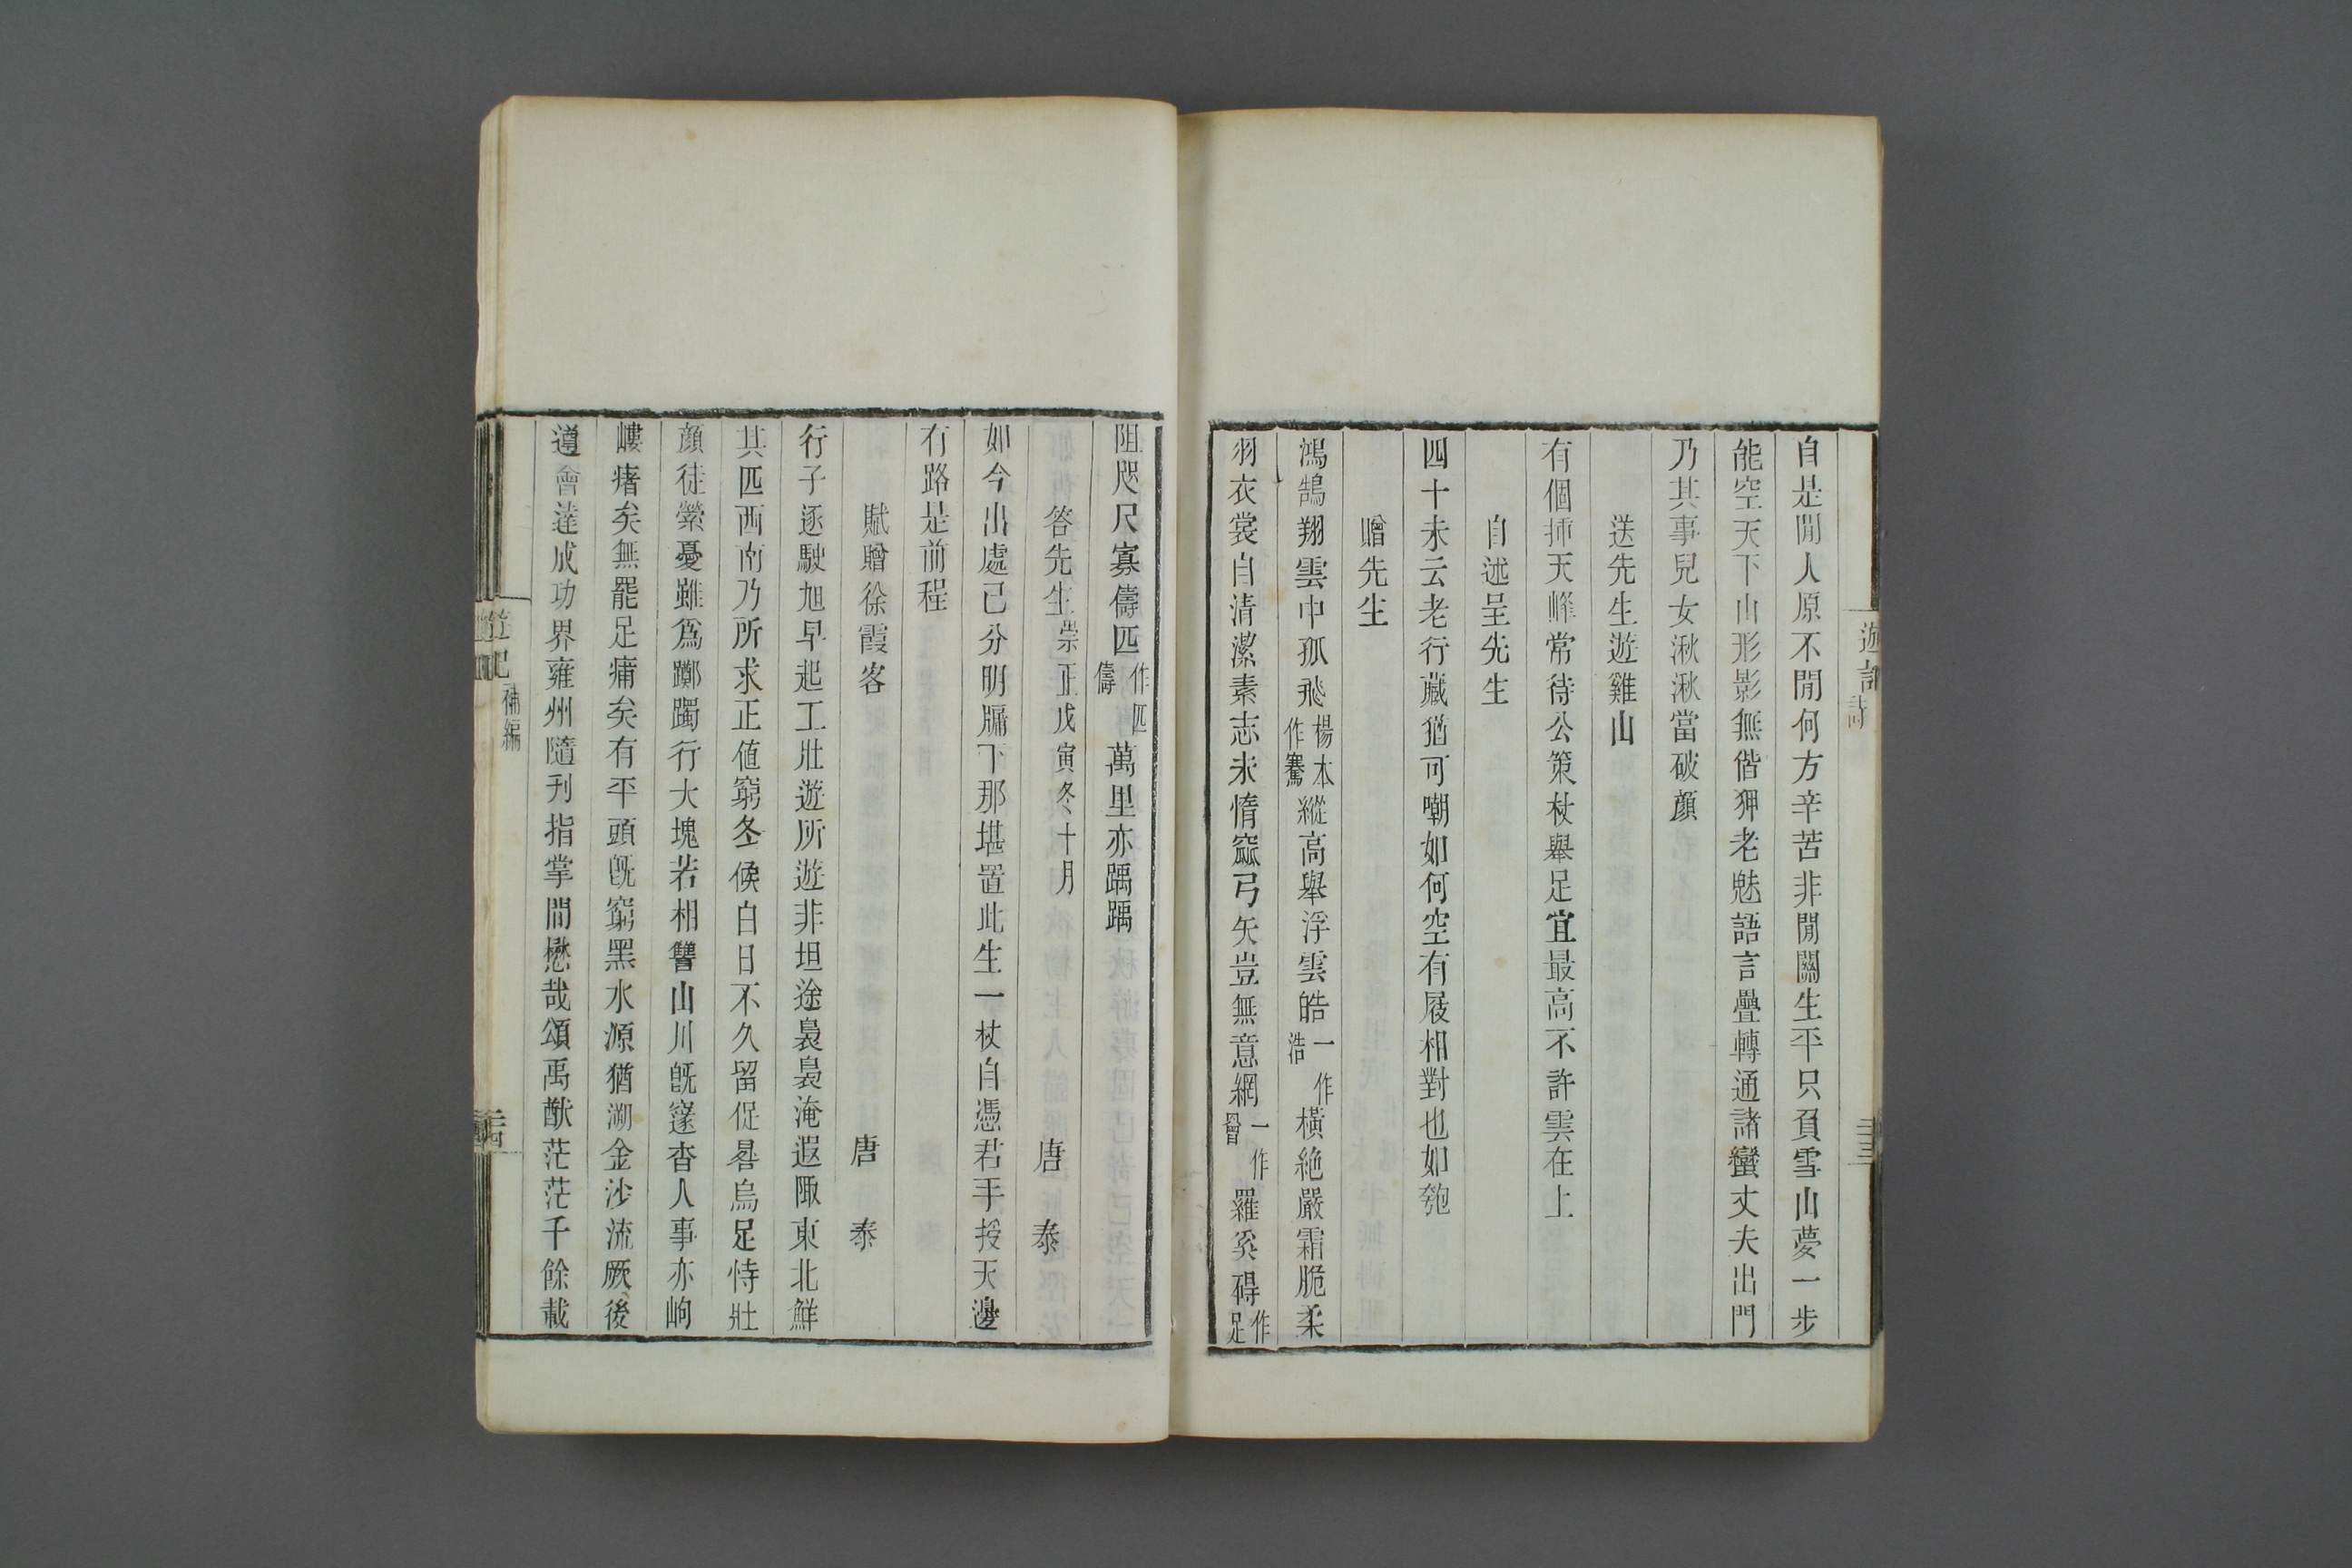 自是閒人原不閒何方辛苦非閒關生平只負雪山夢一步
能空天下山形影無偕狎老魅語言疊轉通諸蠻丈夫出門
乃其事兒女湫湫當破顏
送先生遊雞山
有個揷天峰常待公策杖舉足宜最高不許雲在上
自述呈先生
四十未云老行藏猶可嘲如何空有屐相對也如匏
贈先生
鴻鵠翔雲中孤飛楊本作騫縱高舉浮雲皓一作浩橫絶嚴霜脆柔
羽衣裳自清潔素志未惰窳弓矢豈無意網一作罾羅奚碍作足
阻咫尺寡儔匹作匹儔萬里亦踽踽
答先生崇正戊寅冬十月 唐 泰
如今出處已分明牖下那堪置此生一杖自憑君手授天邊
有路是前程
賦贈徐霞客 唐 泰
行子逐駛旭早起工壯遊所遊非坦途裊裊淹遐陬東北鮮
其匹西南乃所求正值窮冬候白日不久留促晷烏足恃壯
顏徒縈憂雖爲躑躅行大塊若相讐山川旣邃杳人事亦岣
嶁瘏矣無罷足痡矣有平頭旣窮黑水源猶溯金沙流厥後
遵會達成功界雍州隨刊指掌間懋哉頌禹猷茫茫千餘載
遊記 補編